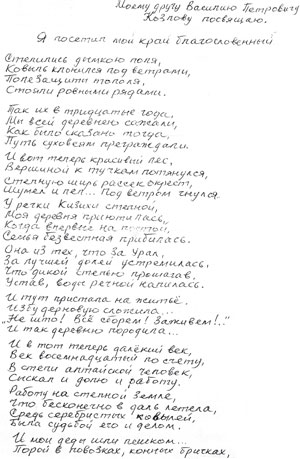 Моему другу Василию Петровичу
Козлову посвящаю.
Я посетил мой край благословенный
Стелились дымкою поля,
Ковыль клонился под ветрами,
Полезащиты тополя,
Стояли ровными рядами.
Так их в тридцатые года,
Мы всей деревнею сажали,
Как было сказано тогда,
Путь суховеям преграждали.
И вот теперь красивый лес,
Вершиной к тучкам потянулся,
Степную ширь рассек окрест,
Шумел и пел... Под ветром гнулся
У речки Кизихи степной,
Моя деревня приютилась,
Когда впервые на постой,
Семья безвестная прибилась.
Она из тех, что за Урал,
За лучшей долей устремилась,
Что дикой степью прошагав.
Устав, воды речной напилась.
И тут пристала на житьё.
Избу дерновую сложила...
"Не што! Всё сборем! Заживём!.."
И так деревню породила...
И в тот теперь далёкий век,
Век восемнадцатый по счёту,
В степи алтайской человек,
Сыскал и долю и работу.
Работу на степной земле,
Что бесконечно в даль летела,
Средь серебристых ковылей,
Была судьбой его и делом.
И мои деды шли пешком...
Порой в повозках, конных бричках,